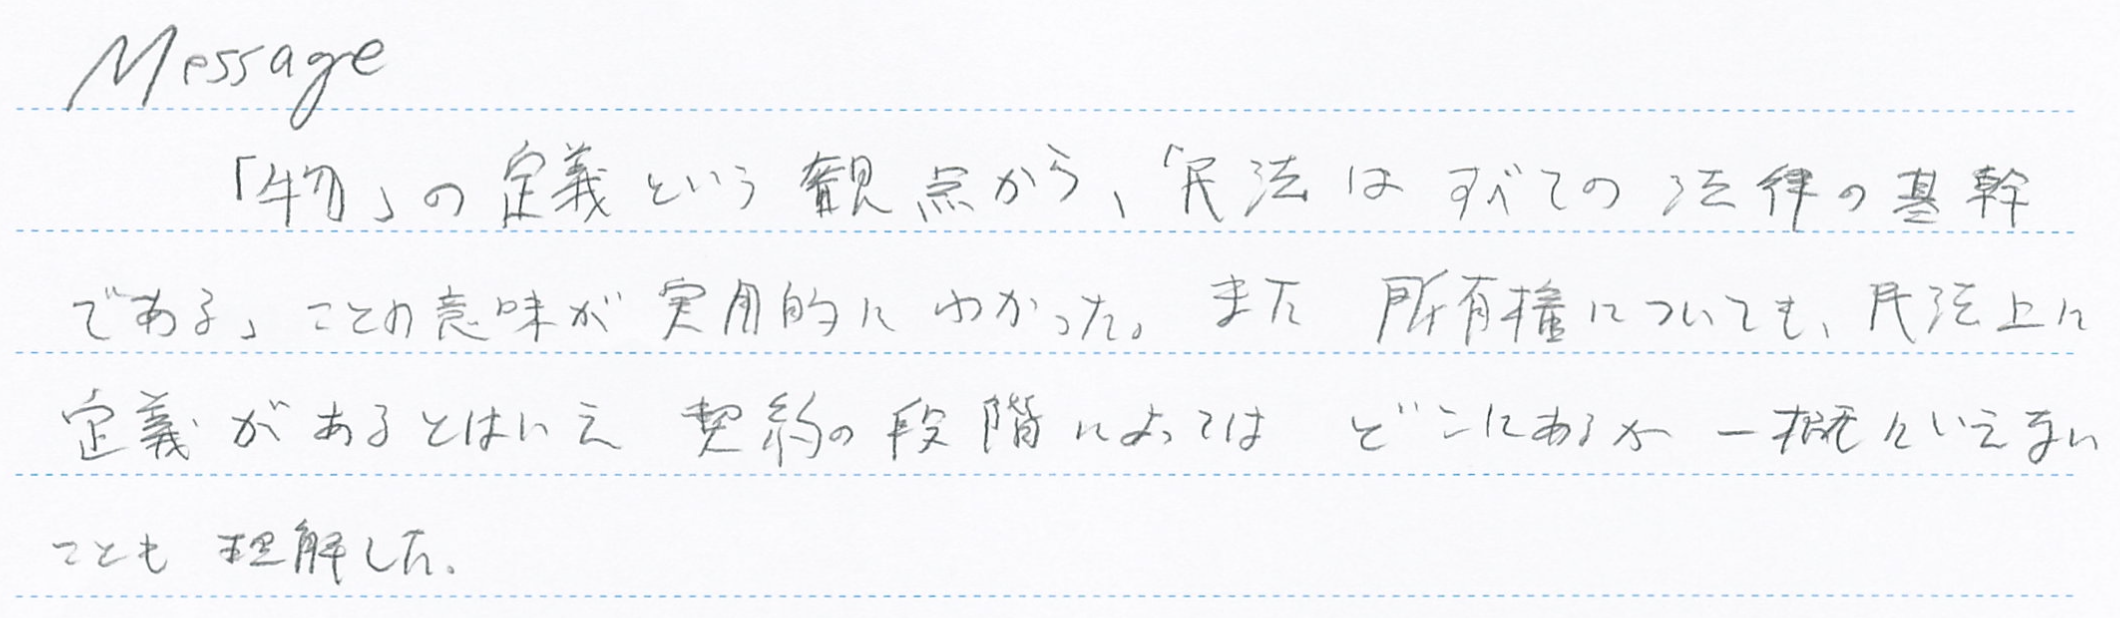 Message
「物」の定義という観点から、「民法はすべての法律の基幹
である」ことの意味が実用的にわかった。また所有権についても、民法上に
定義があるとはいえ契約の段階によってはどこにあるか一概にいえない
ことも理解した。